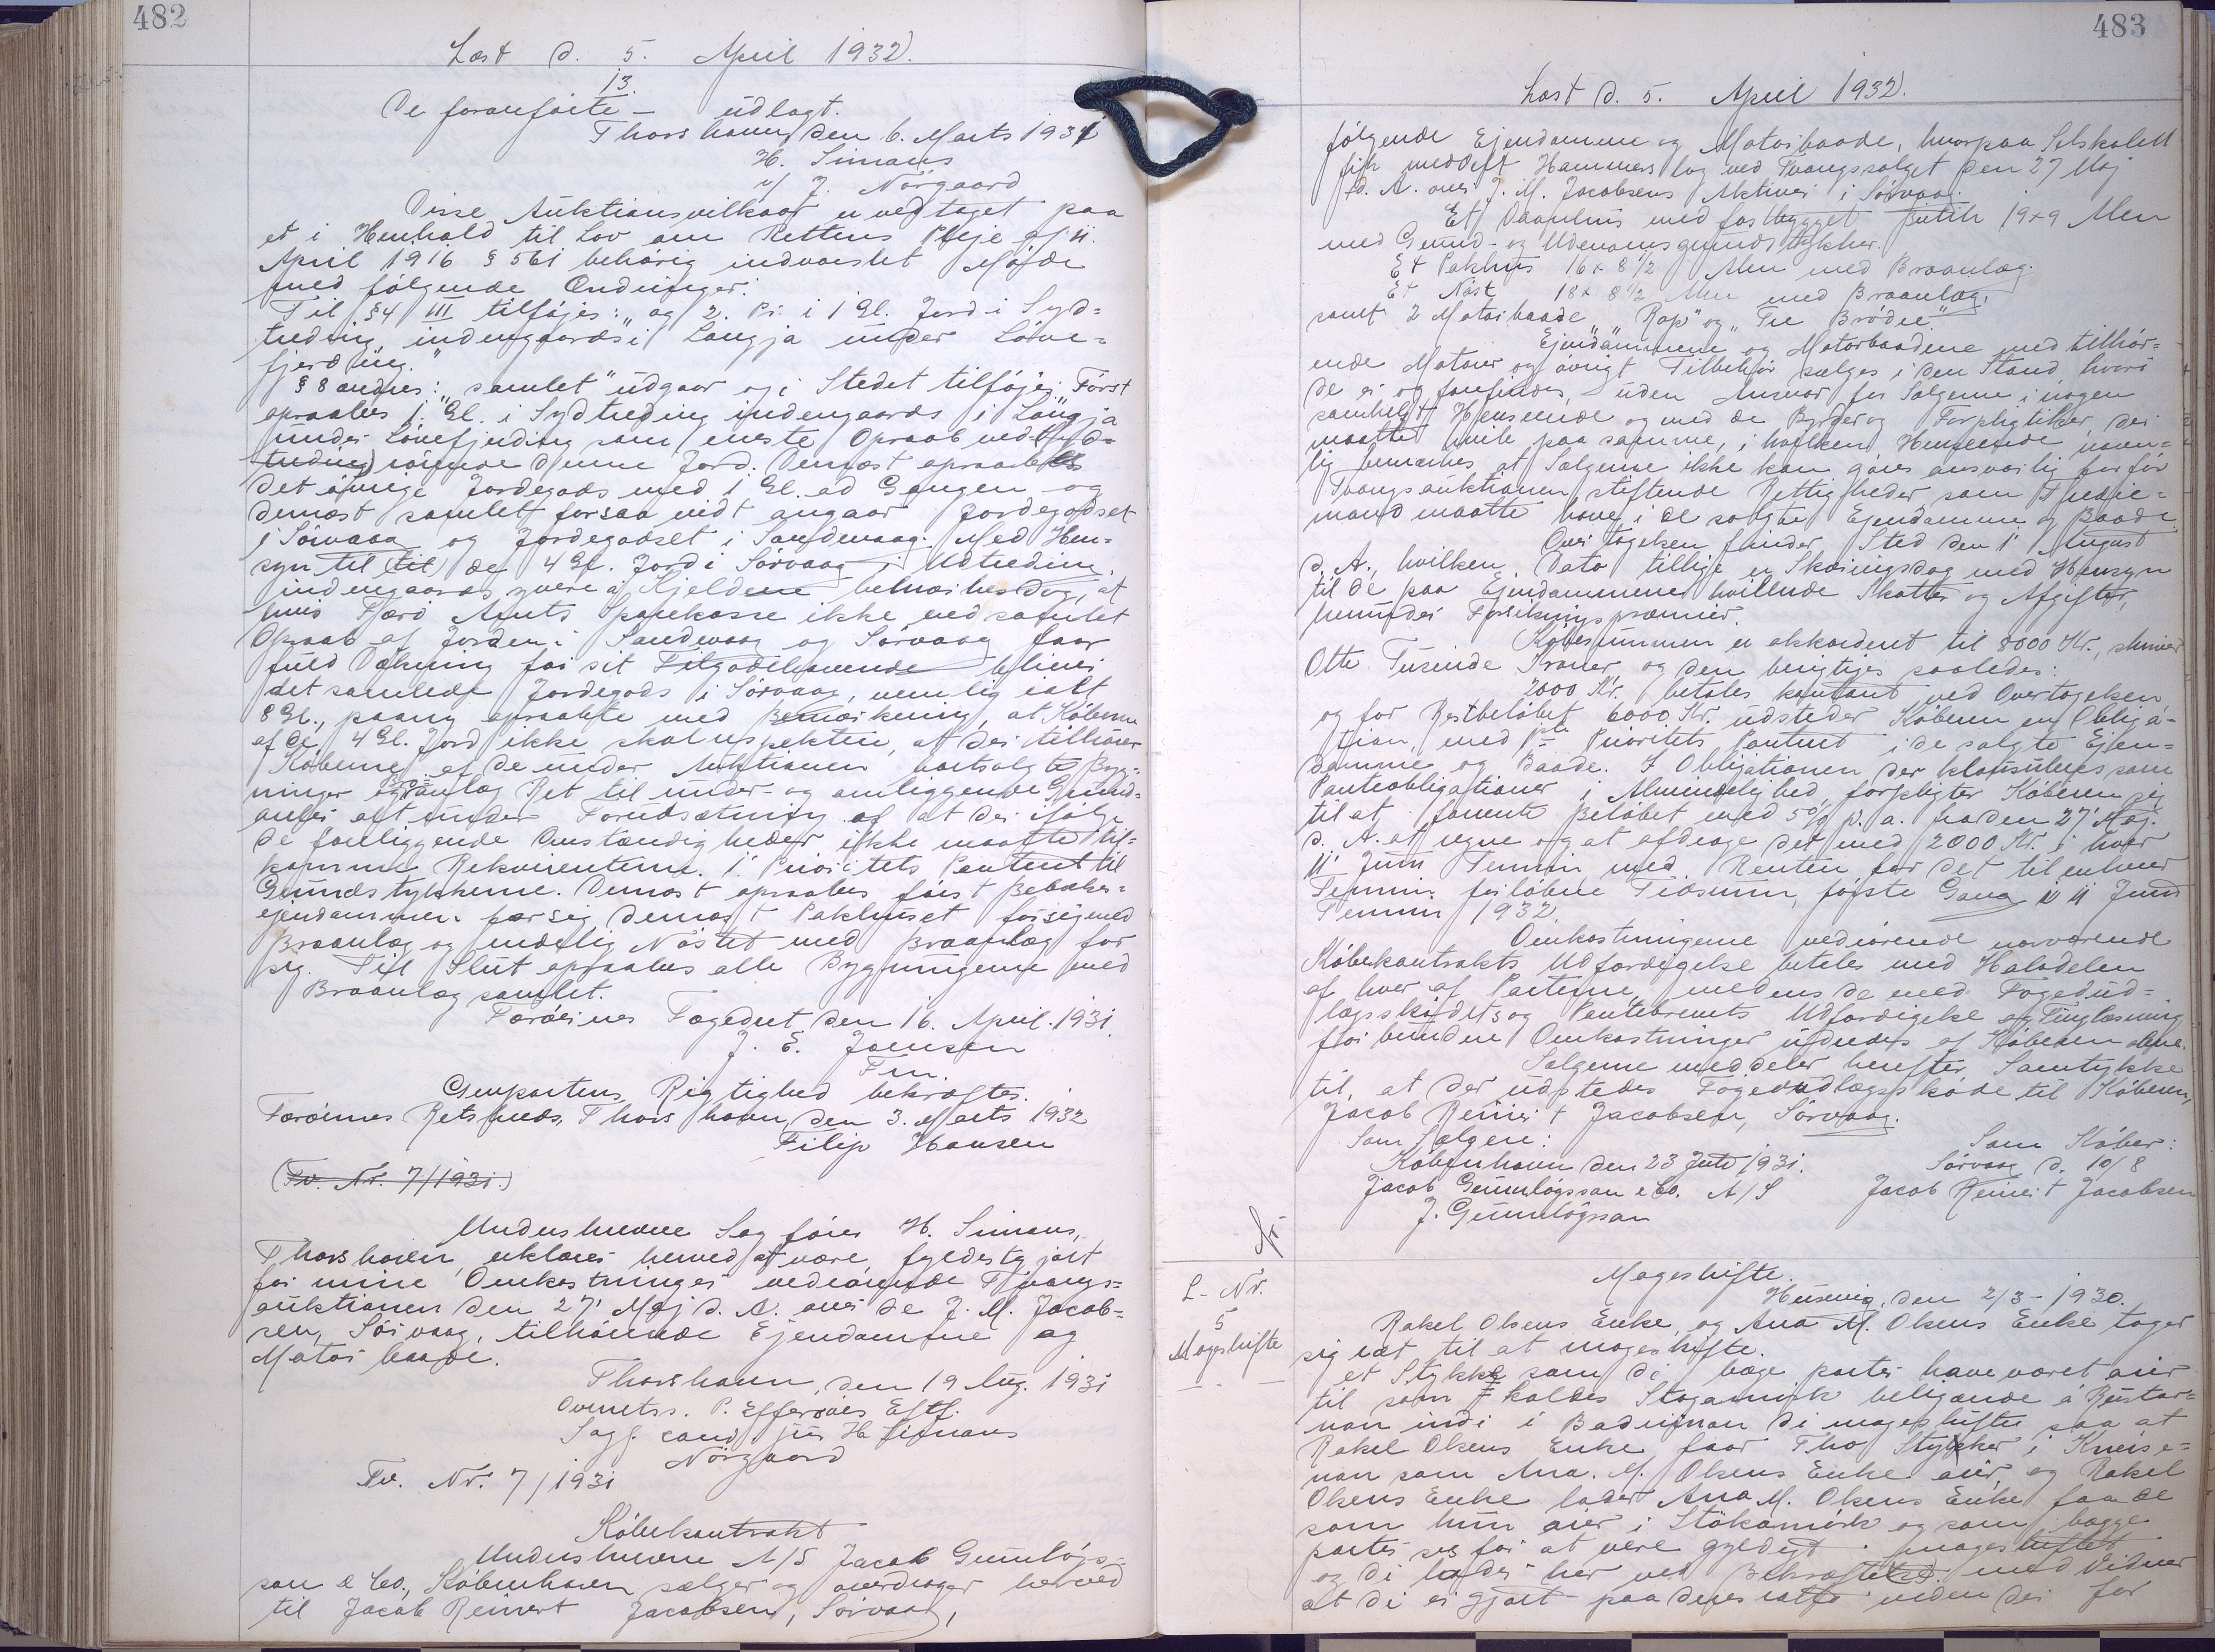 482
Læst d. 5. April 1932.
13.
De foranførte – udlagt.
Thorshavn, den 6. Marts 1931
H. Simans
v/ J. Nörgaard
Disse Auktionsvilkaar er vedtaget paa
et i Henhold til Lov om Rettens Pleje af 11.
April 1916 § 561 behörig indvarslet Möde
med fölgende Ændringer:
Til §4 III tilföjes: "og 2. Pr. i 1 Gl. Jord i Syd=
treding indengaards i Laugja under Löve=
fjerding."
§ 8 andres: "samlet" udgaar og i Stedet tilföjes: Först
opraabes 1 Gl. i Sydtreding indengaards i Laugja
under Lövefjerding som eneste Opraab ved
rörende denne Jord. Dernæst opraabes
det övrige Jordegods med 1 Gl. ad Gangen og
dernæst samlet forsaavidt angaar Jordegodset
i Sörvaag og Jordegodset i Sandevaag. Med Hen=
syn til (til) de 4 Gl. Jord i Sörvaag i Udtreding,
indengaards, yvere á Kjeldene bemærkes dog, at
hvis Færö Amts Sparekasse ikke ved samlet
Opraab af Jorden i Sandevaag og Sörvaag faar
fuld Dækning for sit Tilgodehavende bliver
det samlede Jordegods i Sörvaag, nemlig ialt
8 Gl., paany opraabte med Bemærkning, at Köberne
af de 4 Gl. Jord ikke skal respektere, at der tilkommer
Köberne af de under Auktionen bortsolgte Byg=
ninger og Braanlæg Ret til under- og omliggende Grund=
arealer alt under Forudsætning af at der ifölge
de foreliggende Omstændigheder ikke maatte til=
komme Rekvirenterne 1' Prioritets Panteret til
Grundstykkerne. Dernæst opraabes först Beboelses=
ejendommen for sig dernæst Pakhuset for sig med
Braanlæg og endelig Nöstet med Braanlæg for
sig. Til Slut opraabes alle Bygningerne med
Braanlæg samlet.
Færöernes Fogedret, den 16. April 1931.
J. E. Joensen
Fm.
Genpartens Rigtighed bekræftes.
Færöernes Retskreds, Thorshavn, den 3. Marts 1932
Filip Hansen
(Fv. Nr. 7/1931.)
Undertegnede Sagförer H. Simans,
Thorshavn, erklærer herved at være fyldestgjort
for mine Omkostninger vedrörende Tvangs=
auktionen den 27' Maj d. A. over de J. M. Jacob=
sen, Sörvaag, tilhörende Ejendomme og
Motorbaade.
Thorshavn, den 19 Aug. 1931
Overretss. P. Effersöes Eftf.
Sagf. cand. jur. H Simans
Nörgaard
Fv. Nr. 7/1931
Köbekontrakt
Underskrevne A/S Jacob Gunnlögs=
son & Co., Köbenhavn sælger og overdrager herved
til Jacob Reinert Jacobsen, Sörvaag,
483
Læst d. 5. April 1932.
fölgende Ejendomme og Motorbaade, hvorpaa Selskabet
fik meddelt Hammerslag ved Tvangssalget den 27 Maj
d. A. over J. M. Jacobsens Aktiver i Sörvaag.
Et Vaanhus med fastbygget Butik 19x9 Alen
med Grund- og Udenomsgrundstykker.
Et Pakhus 16 x 8 1/2 Alen med Braanlæg.
Et Nöst 18 x 8 1/2 Alen med Braanlæg.
samt 2 Motorbaade "Rap" og "Tre Brödre"
Ejendommene og Motorbaadene med tilhör=
ende Motorer og övrigt Tilbehör sælges i den Stand, hvori
de er og forefindes, uden Ansvar for Sælgerne i nogen
somhelst Henseende og med de Byrder og Forpligtelser, der
maatte hvile paa samme, i hvilken Henseende navn=
lig bemærkes, at Sælgerne ikke kan göres ansvarlig for för
Tvangsauktionen stiftende Rettigheder som Tredie=
mand maatte have i de solgte Ejendomme og Baade.
Overtagelsen finder Sted den 1' August
d. A., hvilken Dato tillige er Skæringsdag med Hensyn
til de paa Ejendommene hvilende Skatter og Afgifter,
herunder Forsikringspræmier.
Köbesummen er akkorderet til 8000 Kr., skriver
Otte Tusinde Kroner, og den berigtiges saaledes:
2000 Kr. betales kontant ved Overtagelsen
og for Restbelöbet 6000 Kr. udsteder Köberen en Obliga-
tion med 1ste Prioritets Panteret i de solgte Ejen=
domme og Baade. I Obligationen, der klausuleres som
Panteobligationer i Almindelighed, forpligter Köberen sig
til at forrente Belöbet med 5% p. a. fra den 27' Maj
d. A. at regne og at afdrage det med 2000 Kr. i hver
11' Juni Termin med Renten for det til enhver
Termin forlöbne Tidsrum, förste Gang i 11 Juni
Termin 1932.
Omkostningerne vedrörende nærværende
Köbekontrakts Udfærdigelse betales med Halvdelen
af hver af Parterne, medens de med Fogedud=
lægssködets og Pantebrevets Udfærdigelse og Tinglæsning
forbundne Omkostninger udredes af Köberen alene.
Sælgerne meddeler herefter Samtykke
til, at der udstedes Fogedudlægsskøde til Köberen,
Jacob Reinert Jacobsen, Sörvaag.
Som Sælgere:
Köbenhavn den 23 Juli 1931.
Jacob Gunnlögsson & Co. A/S
J. Gunnlögsson
Som Köber:
Sörvaag d. 10/8
Jacob Reinert Jacobsen
L- Nr.
5
Mageskifte
Mageskifte.
Husevig, den 2/3 - 1930.
Rakel Olsens Enke og Ana M. Olsens Enke tager
sig ræt til at mageskifte.
et Stykke som di bæge parter have været aier
til som kaldes Stogamörk beligende á Reistar=
nan indi i Badninan di mageskifter saa at
Rakel Olsens Enke faar Tho Stykker i Kneise=
nan som Ana. M. Olsens Enke aiir, og Rakel
Olsens Enke lader Ana M. Olsens Enke faa de
som hun aier i Stökamörk og som bagge
parter ser for at vere gyldegt mageskiftet
og di lader her ved Bekræftelse med Vidner
at di er gjort paa deres uden der for